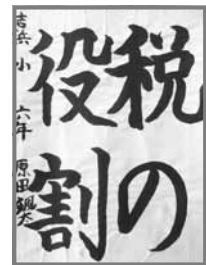 税の
役割
吉浜小 六年 原田颯太